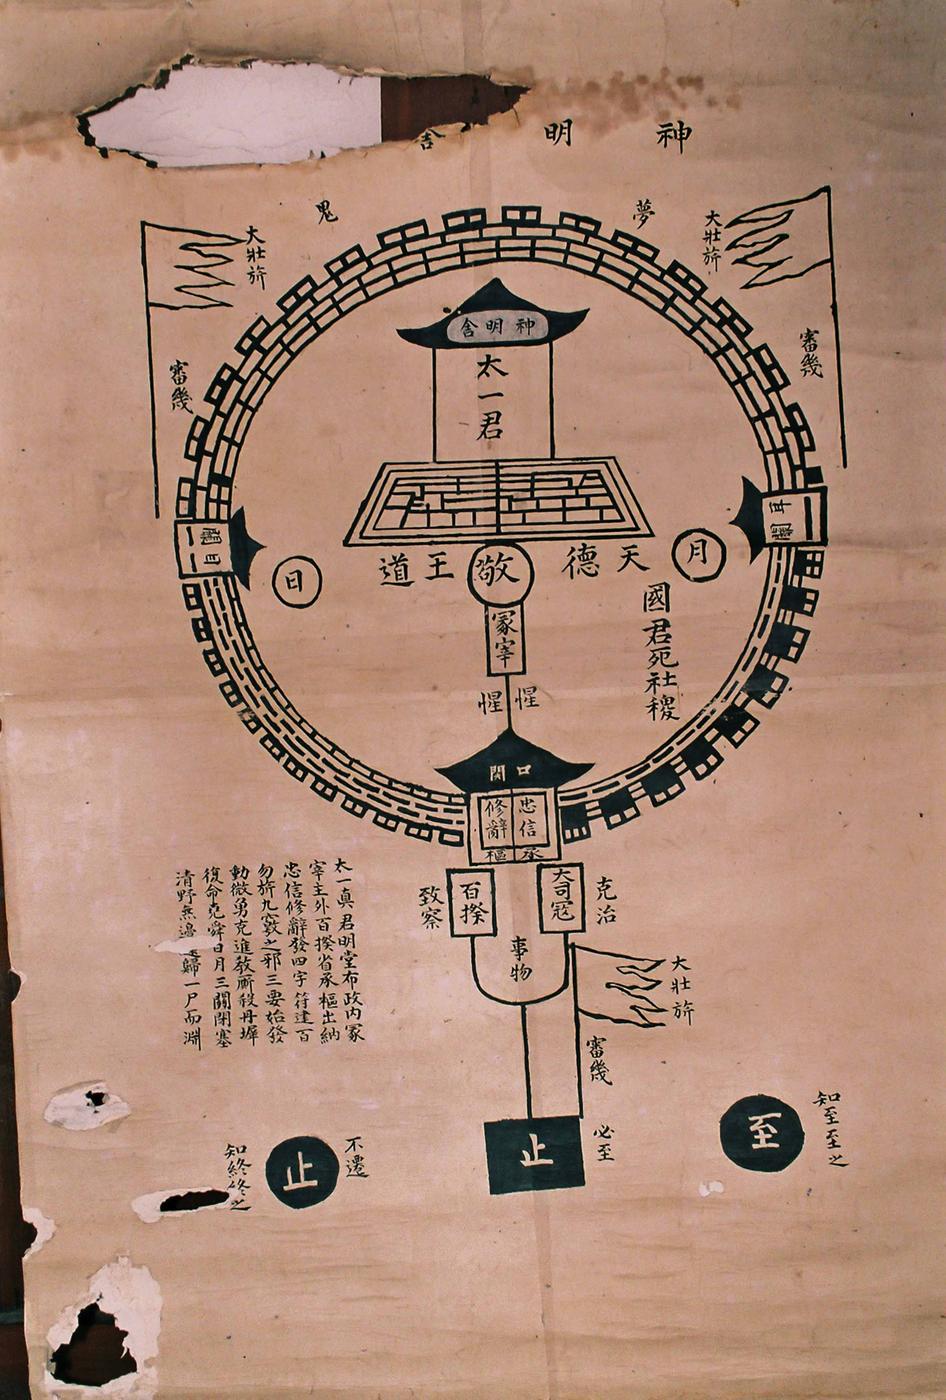 神明舍
夢
鬼
大壯旂
審幾
大壯旂
審幾
神明舍
太一君
天德
敬
王道
月
日
耳關
目關
冢宰
惺惺
國君死社稷
口關
忠信
修辭
承樞
大司寇
克治
百揆
致察
事物
大壯旂
審幾
太一真君明堂布政内冢
宰主外百揆省承樞出納
忠信修辭發四字符建百
勿旂九竅之邪三要始發
動微勇克進教厮殺丹墀
復命堯舜日月三關閉塞
清野無邊歸一尸而淵
至
知至至之
止
必至
止
不遷
知終終之